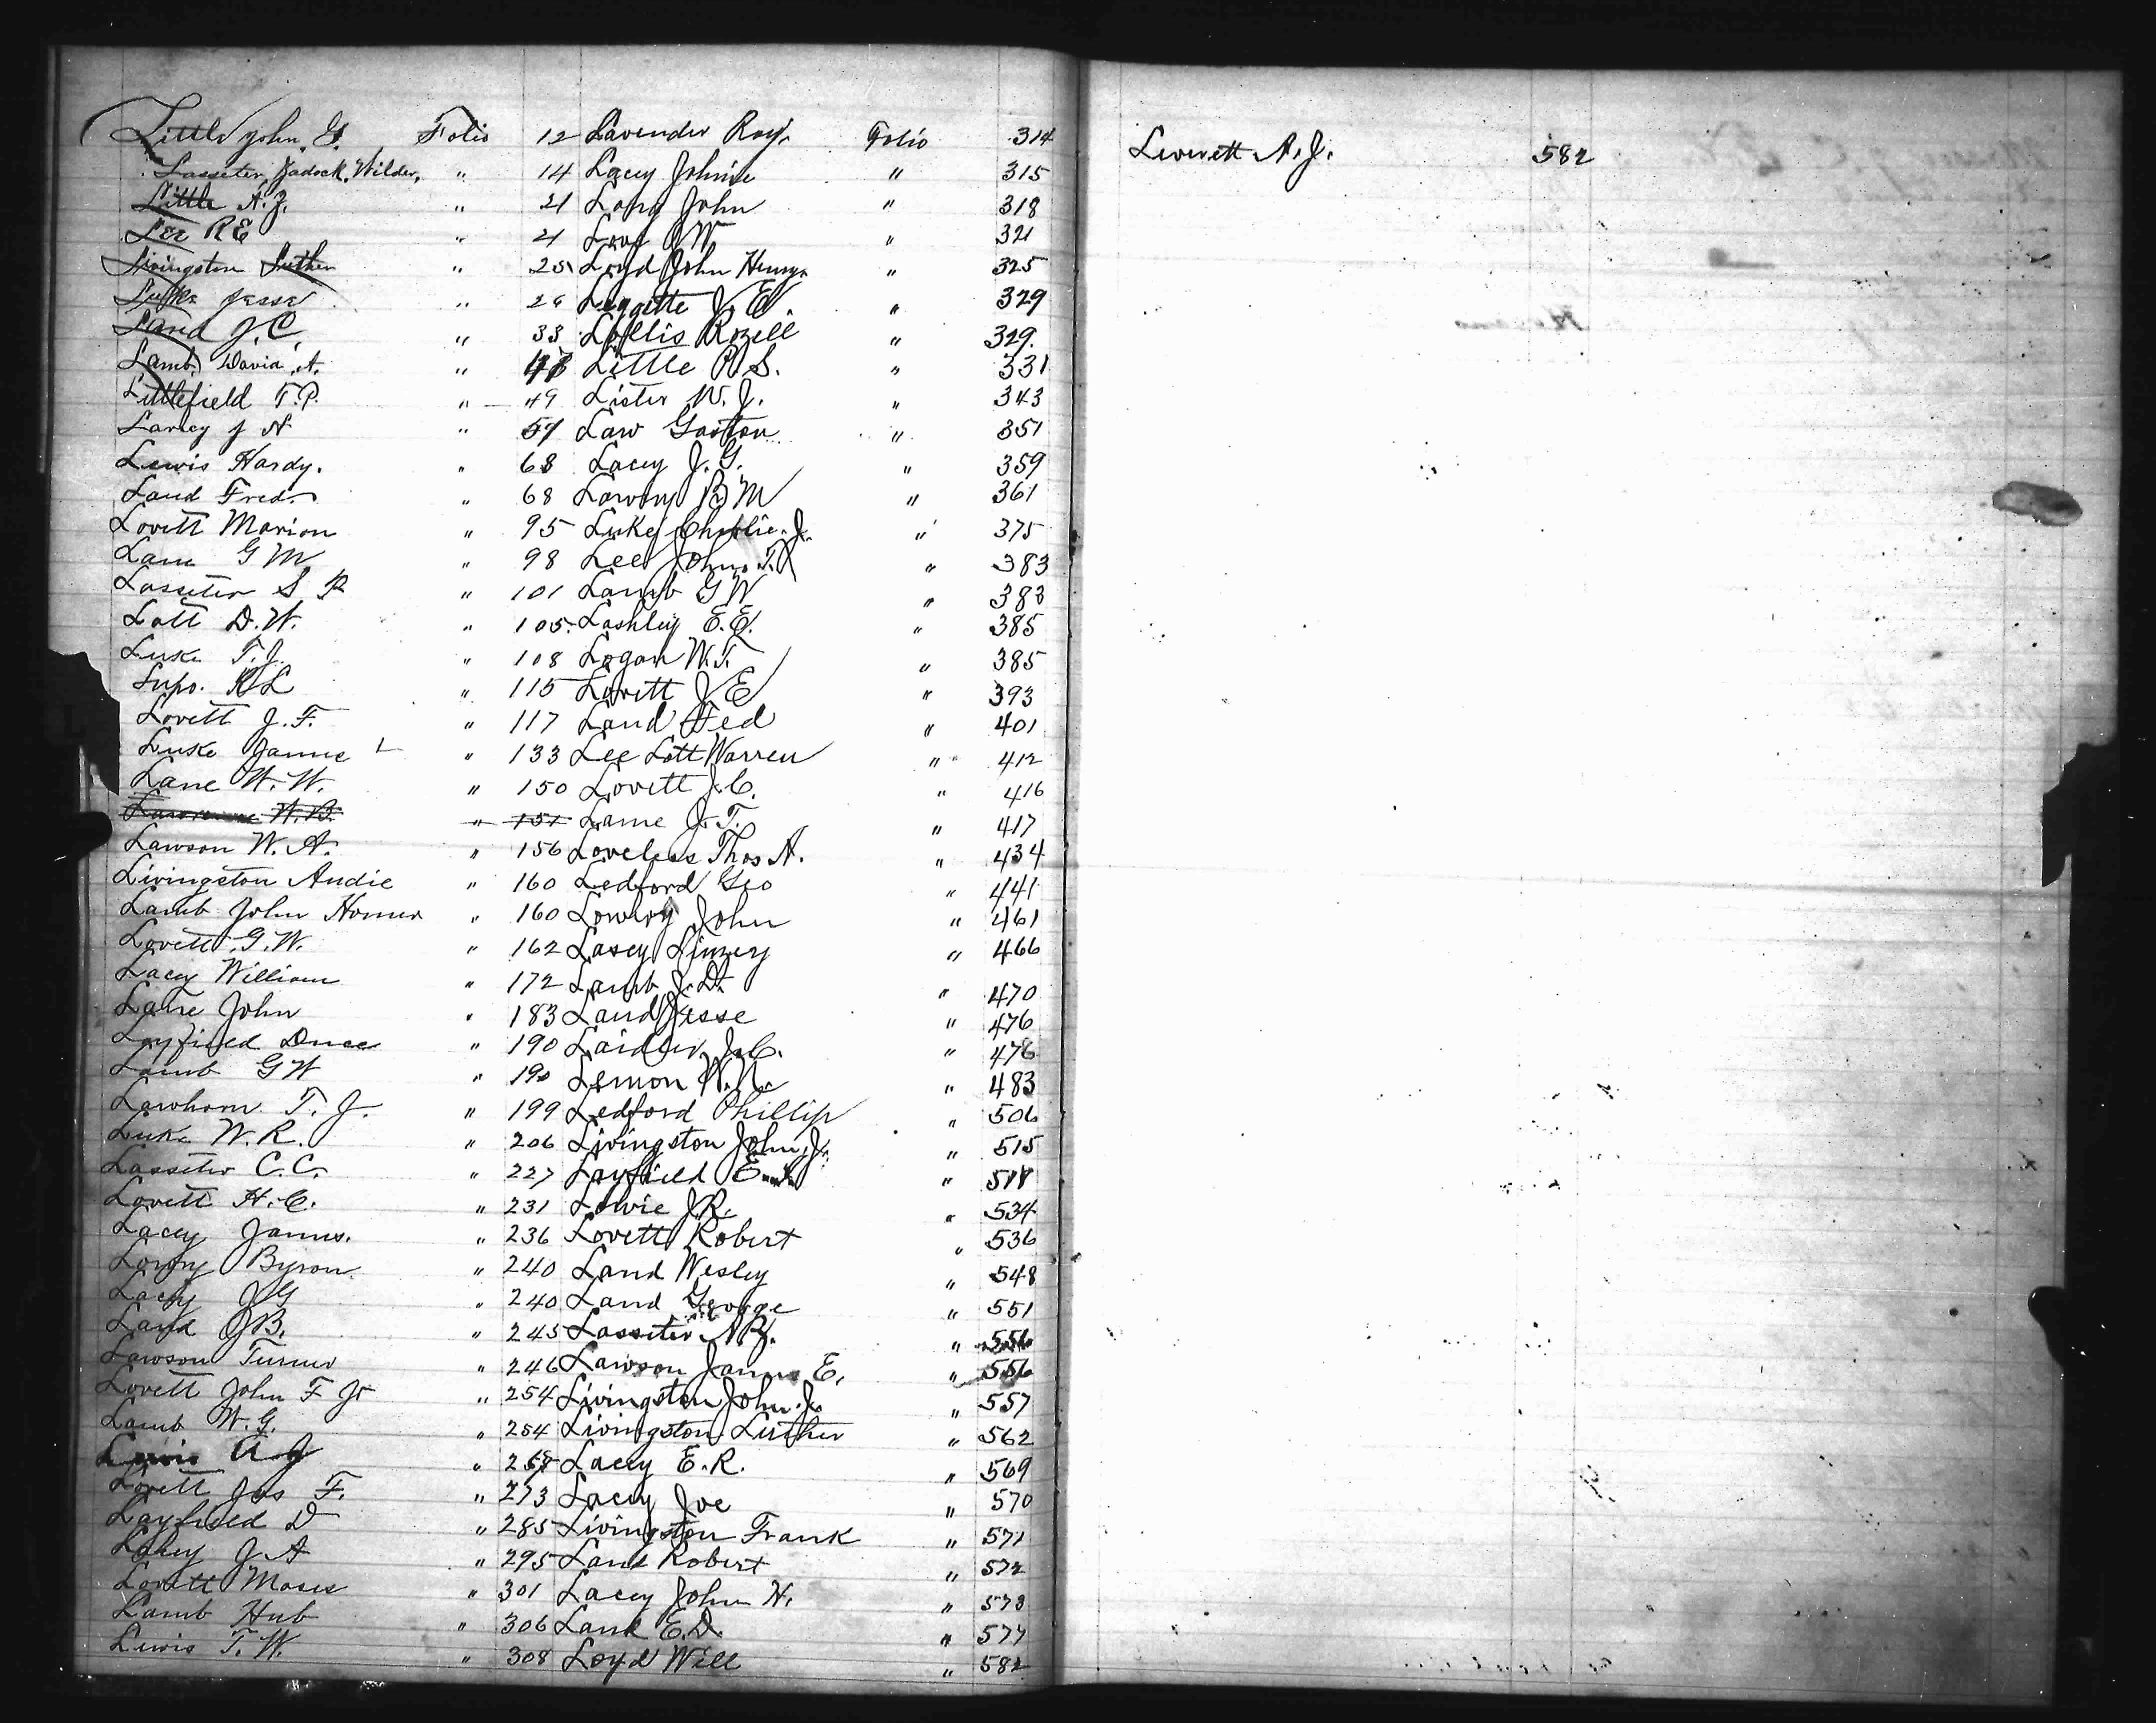 Little John, G. Folio 12
Lasseter, Zadock, Wilder, " 14
Little A. J. " 21
Lee R E " 21
Livingston Luther " 25
Luke Jesse "
Land J. C. " 33
Lamb, David, A. "
Littlefield T. P. " 49
J A " 57
Lewis Hardy. " 68
Land Fred " 68
Lovett Marion " 95
Lane G M " 98
Lasseter S R " 101
Lott D. W. " 105
Luke T. J. " 108
R L " 115
Lovett J. F. " 117
Luke James L " 133
Lane W. W. " 150
W. B. " 151
Lawson W. A. " 156
Livingston Audie " 160
Lamb John Homer " 160
Lovett G. W. " 162
Lacey William " 172
Lane John " 183
Layfield Duce " 190
Lamb G W " 190
Lawhorn T. J. " 199
Luke W. R. " 206
Lasseter C. C. " 227
Lovett H. C. " 231
Lacey James. " 236
Lowry Byron " 240
Lacey J G " 240
Land J B. " 245
Lawson Turner " 246
Lovett John F Jr " 254
Lamb W. G. " 254
Lewis A J "
Lovett Jas F. " 273
Layfield D " 285
Lacey J A " 295
Lovett Moses " 301
Lamb Hub " 306
Lewis T. W. " 308
Lavender Roy. Folio 314
Lacey Johnie " 315
Long John " 318
J W " 321
Loyd John Henry " 325
Leggette J. E. " 329
Lollis Rozell " 329.
Little R. S. " 331
Lister W. J. " 343
Law Gaston " 351
Lacey J. G. " 359
B M " 361
Luke Charlie. J. " 375
Lee John. T. " 383
Lamb G W " 383
Lashley E. E. " 385
Logan W. T. " 385
Lovett J E " 393
Land Fed " 401
Lee Lott Warren " 412
Lovett J. C. " 416
Lame J. T. " 417
Loveless Thos A. " 434
Ledford Geo " 441
Lowry John " 461
Lasey Limzey " 466
Lamb J. D. " 470
Land Jesse " 476
Laidler J. C. " 476
Lemon W. N. " 483
Ledford Phillip " 506
Livingston John, J. " 515
Layfield "
Lowie J. R. " 534
Lovett Robert " 536
Land Wesley " 548
Land George " 551
Lasseter A Z. " 556
Lawson James E. " 556
Livingston John. J. " 557
Livingston Luther " 562
Lacey E. R. " 569
Lacey Joe " 570
Livingston Frank " 571
Land Robert " 572
Lacey John H. " 573
Lane E. D. " 577
Loyd Will " 582
Leverett A. J. 582